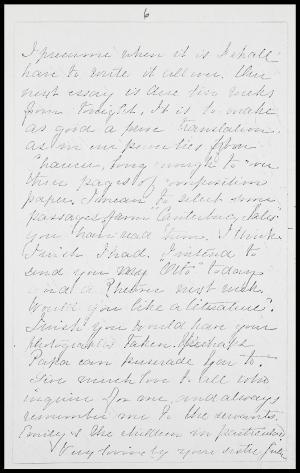 6
I presume when it is I shall
have to write it all over. Our
next essay is due two weeks
from tonight. It is to make
as good a prose translation
as in our power lies of
Chaucer, long enough to
three pages of composition
paper. I mean to select some
passages from Canterbury Tales
you have read them. I think
I wish I had. I intend to
send you my "Otto" today
and a next week
Would you like a "literature".
I wish you would have your
photographs taken. Perhaps
Papa can persuade you to.
Give much love to all who
inquire for me, and always
remember me to the servants,
Emily & the children in particular
Very lovingly your sister